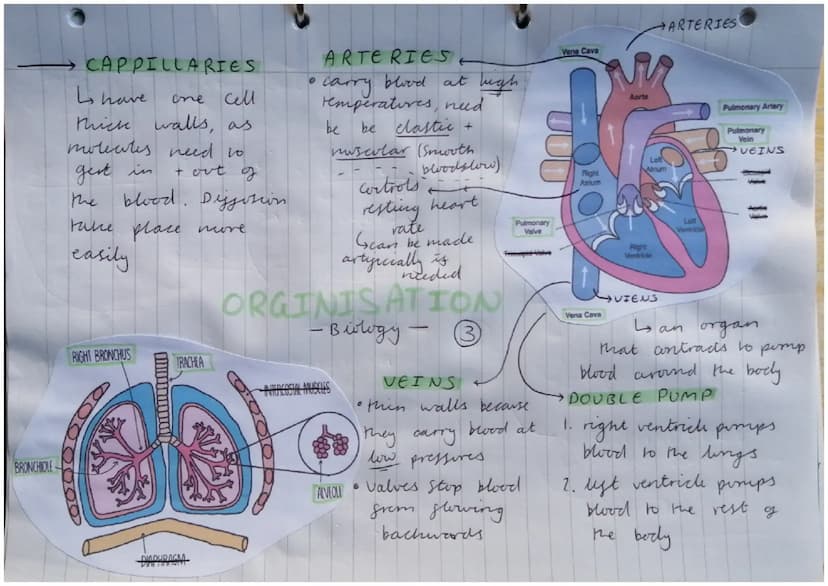 CAPPILLARIES
↳ have one cell
thick walls, as
molecules need to
gest in + out of
the blood. Diffusion
take place more
easily
ARTERIES
• carry blood at high
temperatures, need
be be elastic +
muscular (smooth
bloodslow)
controls
resting heart
rate
↳ can be made
artificially is
needed
ARTERIES
Vena Cava
Aorta
Pulmonary Artery
Pulmonary
Vein
VEINS
Left
Atrium
Right
Atrium
Valve
Aortic
Valve
Pulmonary
Valve
Left
Ventricle
Right
Ventricle
Valve
VIENS
Vena Cava
ORGINISATION
- Biology - 3
↳ an organ
that contracts to pump
blood around the body
RIGHT BRONCHUS
TRACHEA
INTERCOSTAL MUSCLES
BRONCHIOLE
ALVEOLI
DIAPHRAGM
VEINS
• thin walls because
they carry blood at
low pressures
• valves stop blood
from flowing
backwards
DOUBLE PUMP
1. right ventricle pumps
blood to the lungs
2. left ventricle pumps
blood to the rest of
the body